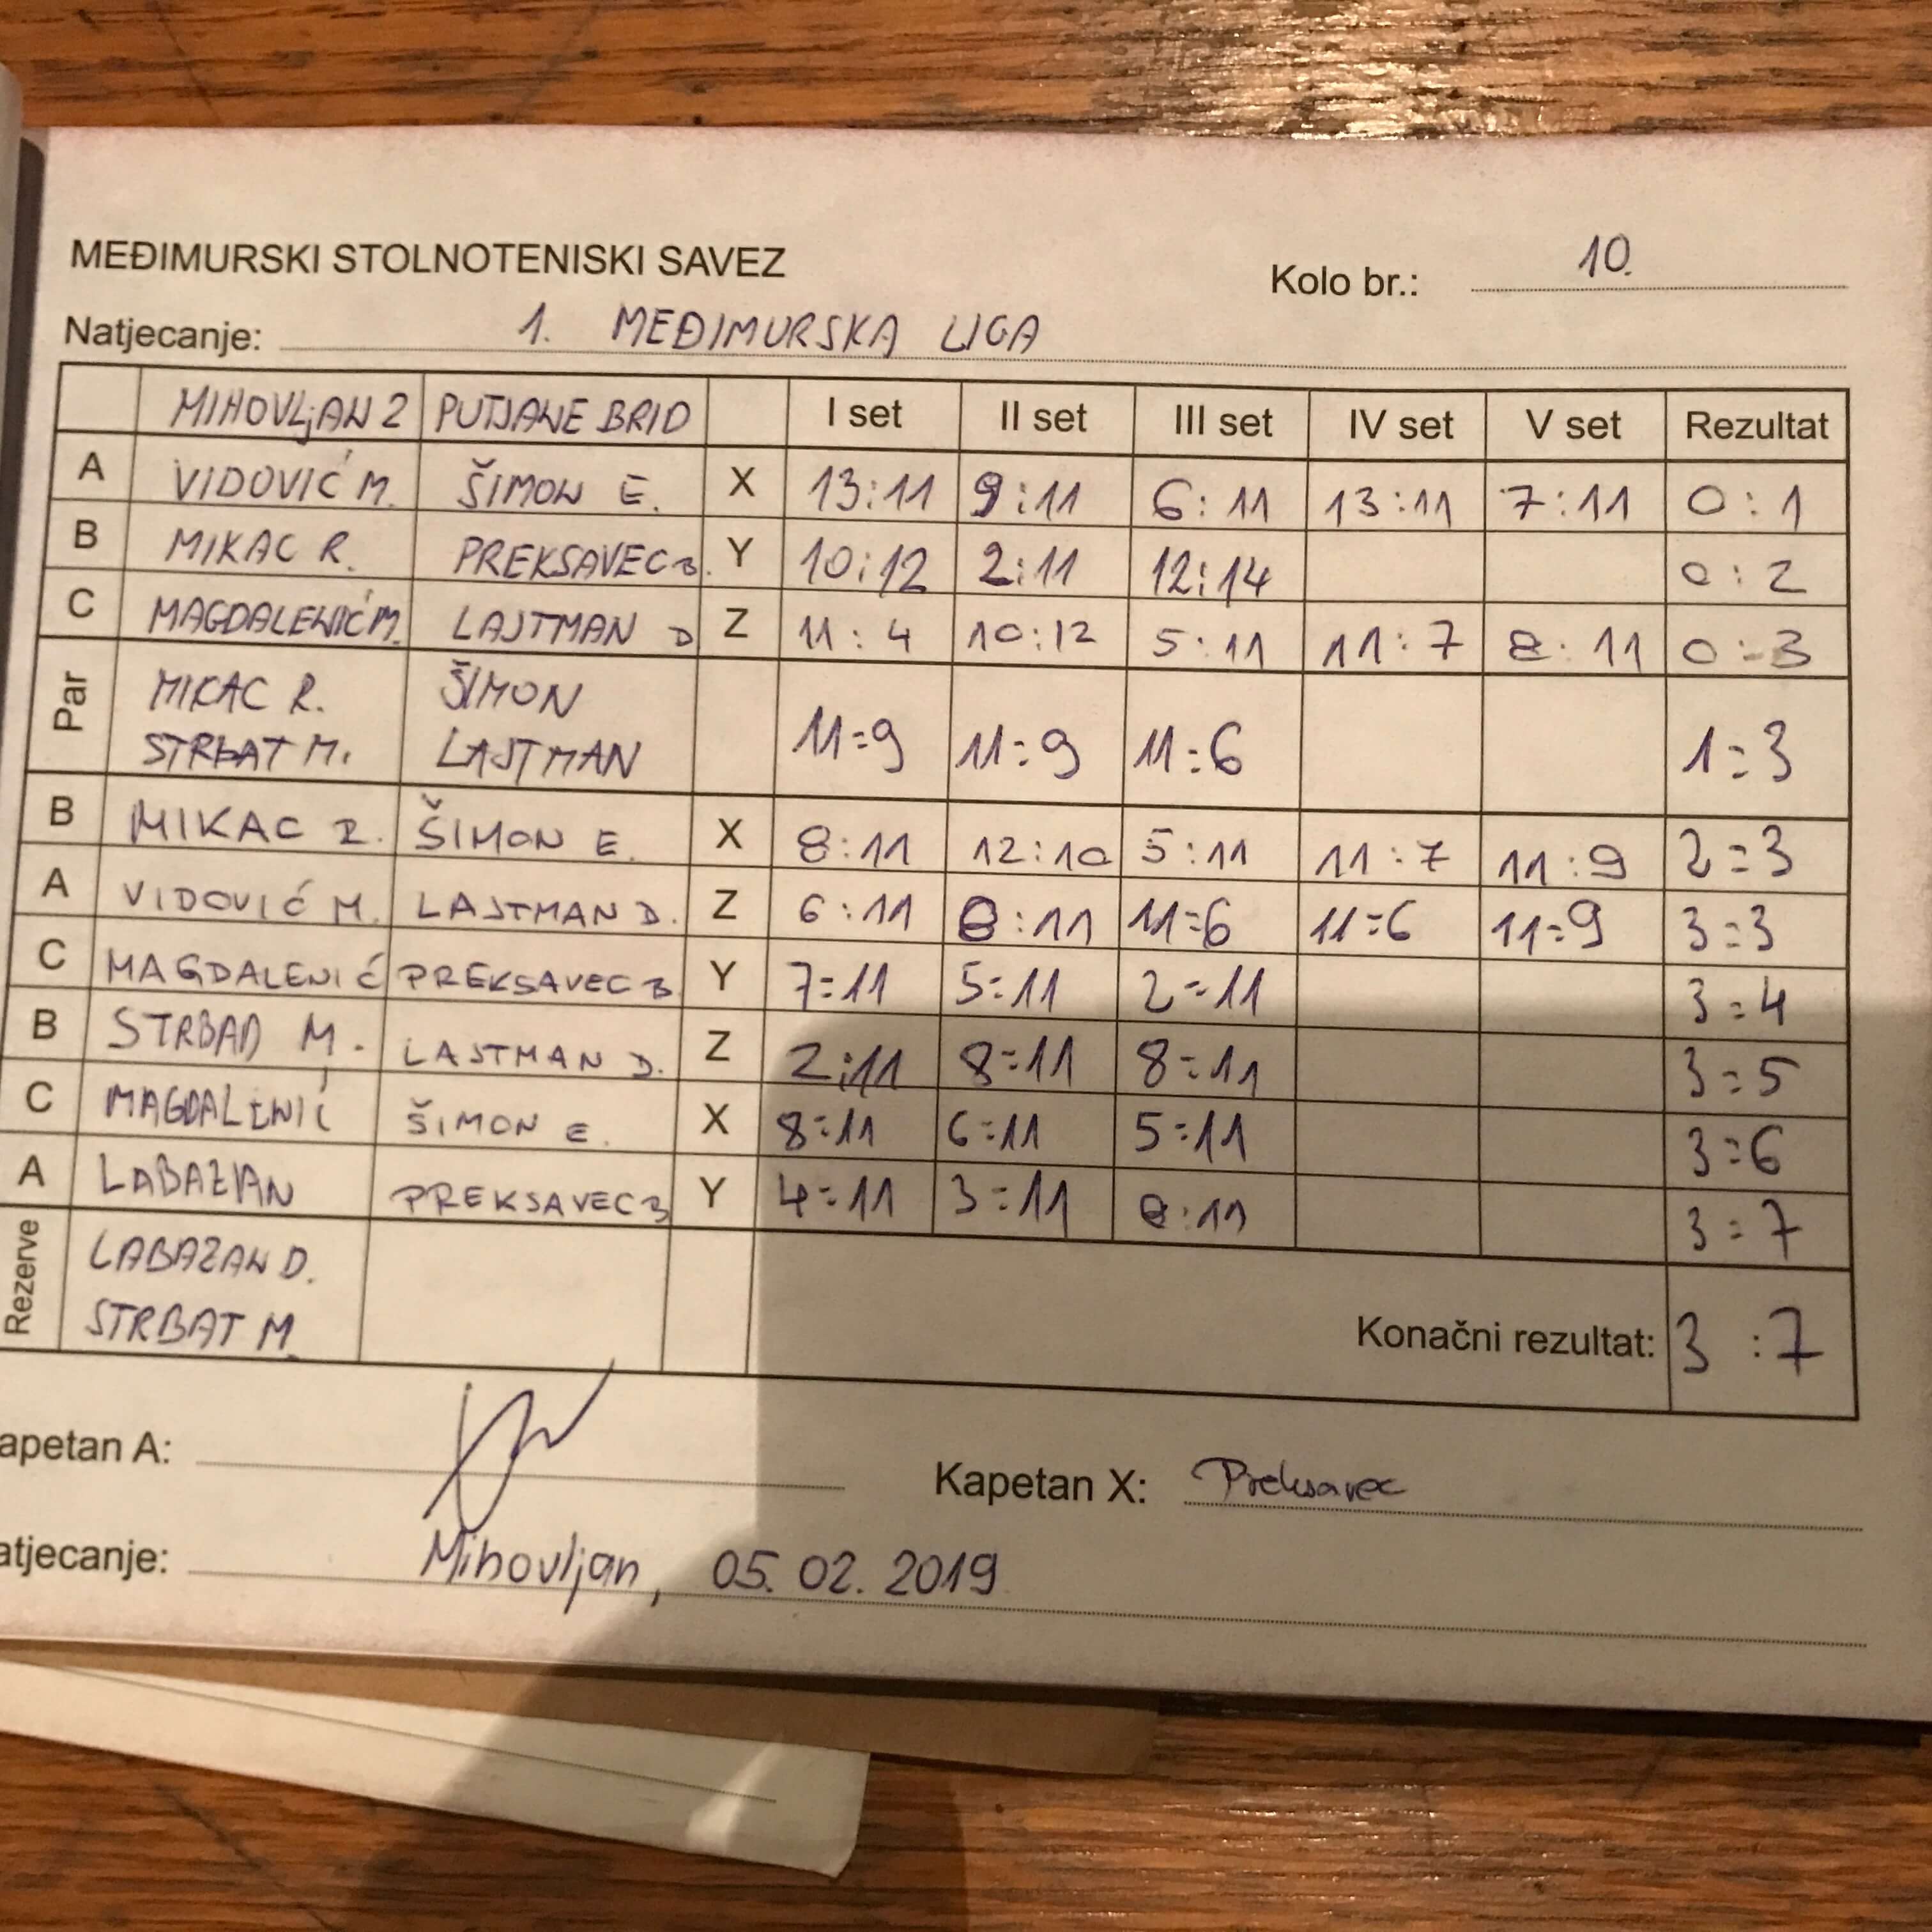 MEĐIMURSKI STOLNOTENISKI SAVEZ Kolo br.: 10.
Natjecanje: 1. MEĐIMURSKA LIGA
MIHOVLjAN 2 PUTJANE BRID I set II set III set IV set V set Rezultat
A VIDOVIĆ M. ŠIMON E. X 13:11 9:11 6:11 13:11 7:11 0:1
B MIKAC R. PREKSAVEC B. Y 10:12 2:11 12:14 0:2
C MAGDALENIĆ M. LAJTMAN D Z 11:4 10:12 5:11 11:7 8:11 0:3
Par MIKAC R. ŠIMON
STRBAT M. LAJTMAN 11=9 11=9 11=6 1=3
B MIKAC R. ŠIMON E. X 8:11 12:10 5:11 11:7 11:9 2=3
A VIDOVIĆ M. LAJTMAN D. Z 6:11 8:11 11=6 11=6 11=9 3=3
C MAGDALENIĆ PREKSAVEC B Y 7=11 5=11 2=11 3=4
B STRBAD M. LAJTMAN D. Z 2:11 8=11 8=11 3=5
C MAGDALENIĆ ŠIMON E. X 8=11 6=11 5=11 3=6
A LABAZAN PREKSAVEC B Y 4=11 3=11 8:11 3=7
Rezerve LABAZAN D.
STRBAT M.
Konačni rezultat: 3:7
apetan A: Kapetan X: Preksavec
atjecanje: Mihovljan, 05.02.2019